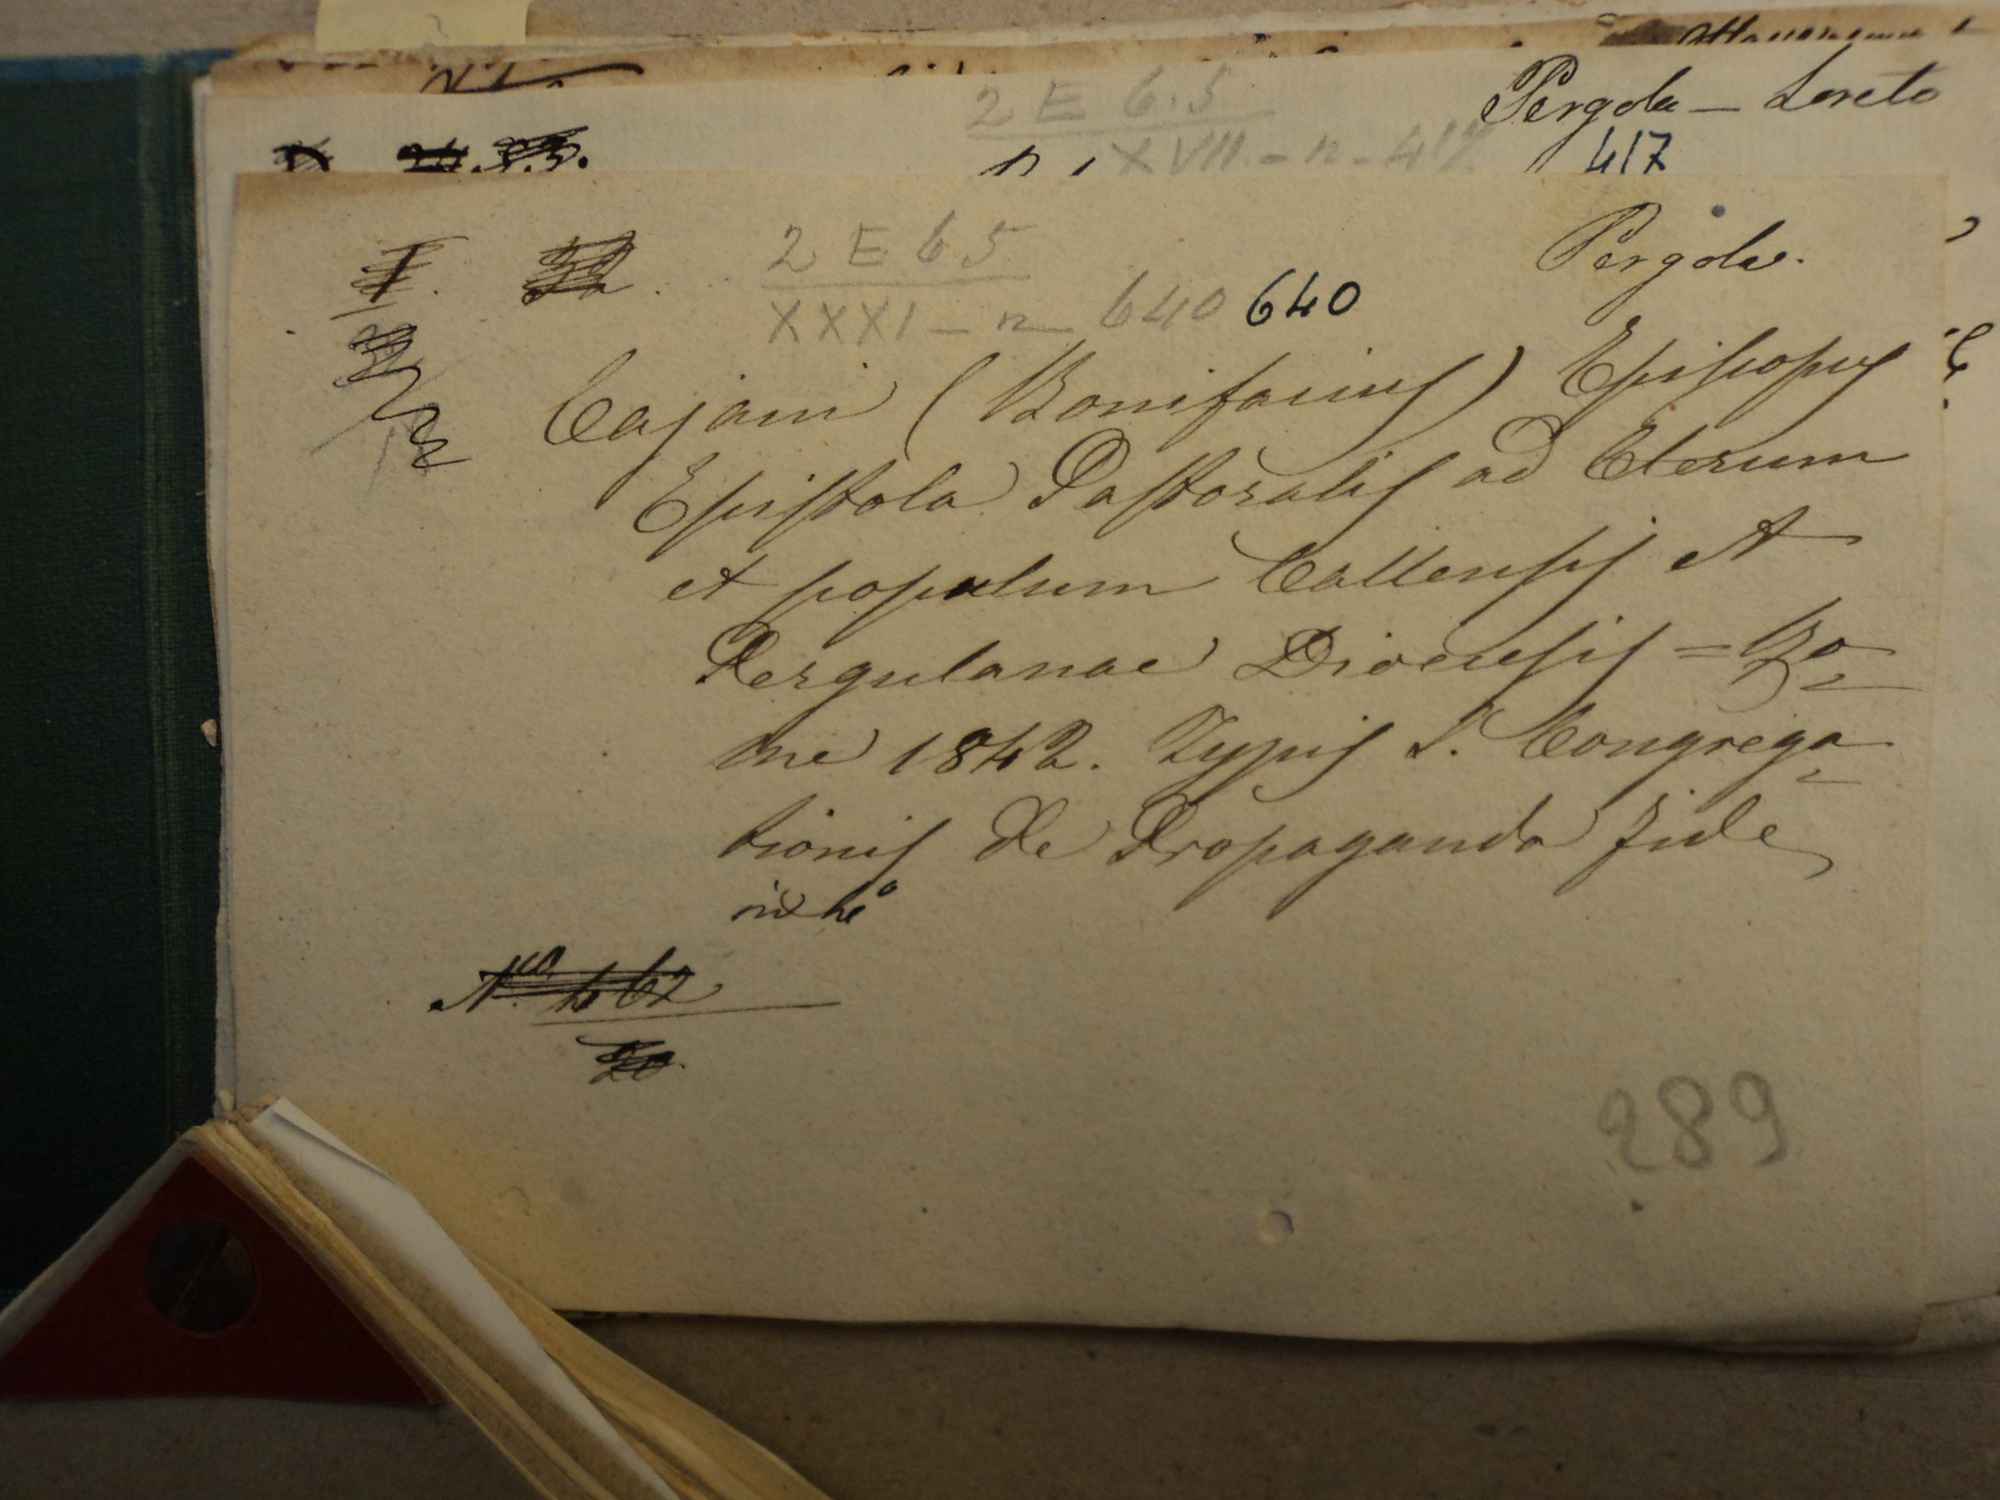 Pergola — Loreto
2 E 6.5
XVII - n - 417
417
Pergola.
2 E 6 5
XXXI - n 640 640
Cajani (Bonifacius) Episcopus
Epistola Pastoralis ad Clerum
et populum Callensis et
Pergulanae Diocensis = Ro=
me 1842. Typis S. Congrega=
tionis De Propaganda Fide
in
289